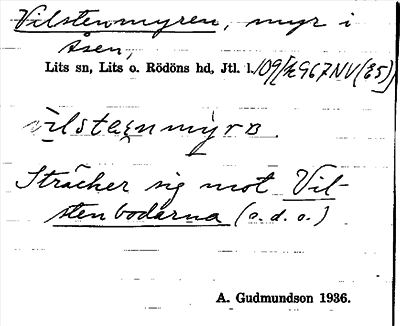 Vilstenmyren, myr i
Åsen,
Lits sn, Lits o. Rödöns hd, Jtl. l.
Sträcker sig mot Vil-
stenbodarna (o.d.o.)
A. Gudmundson 1936.